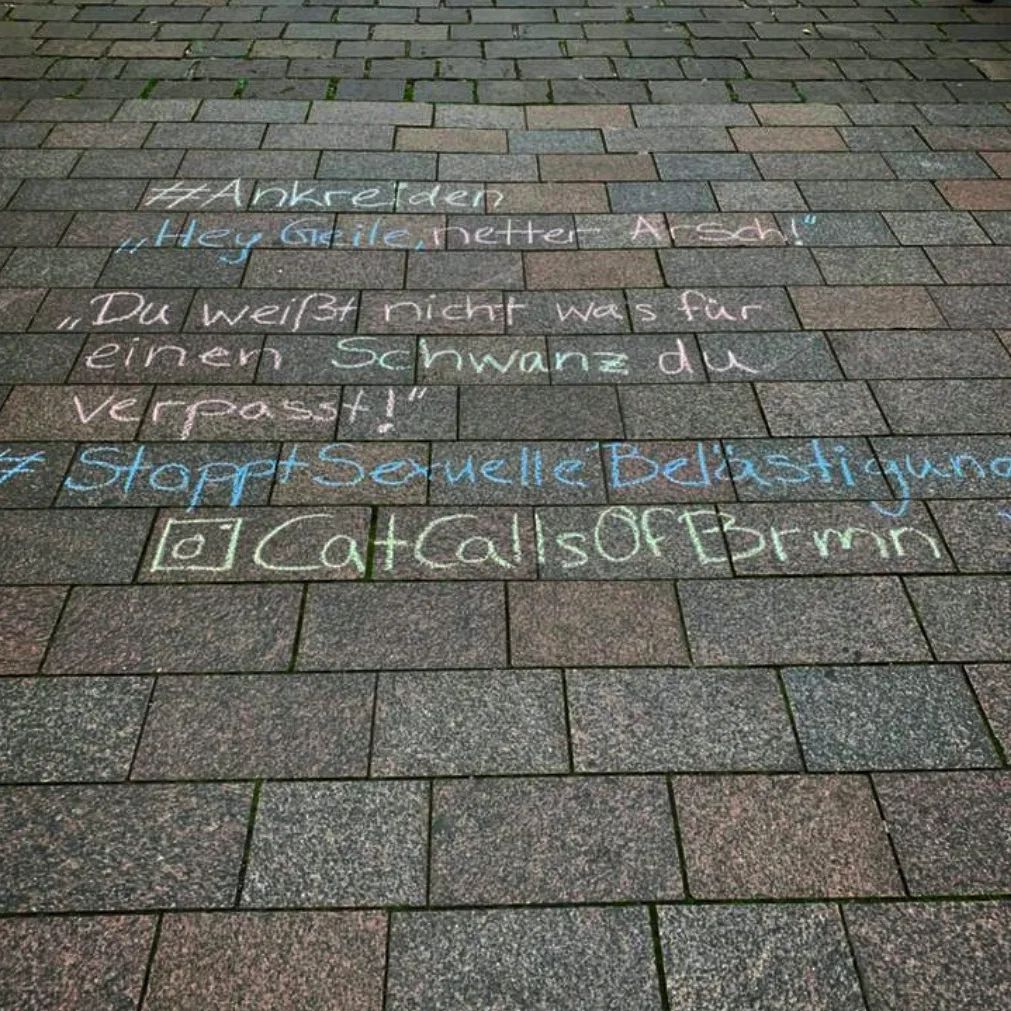 #Ankreiden
„Hey Geile, netter Arsch!“
„Du weißt nicht was für
einen Schwanz du
verpasst!“
#StopptSexuelleBelästigung
CatCallsOfBrmn